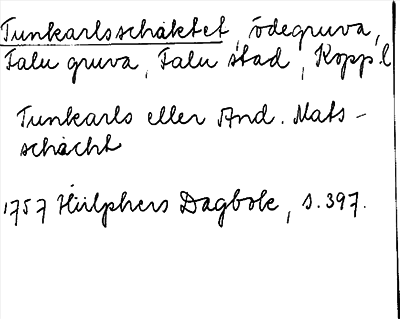 Tunkarlsschaktet, ödegruva,
Falu gruva, Falu stad, Kopp. l
Tunkarls eller And. Mats-
schacht
1757 Hülphers Dagbok, s. 397.